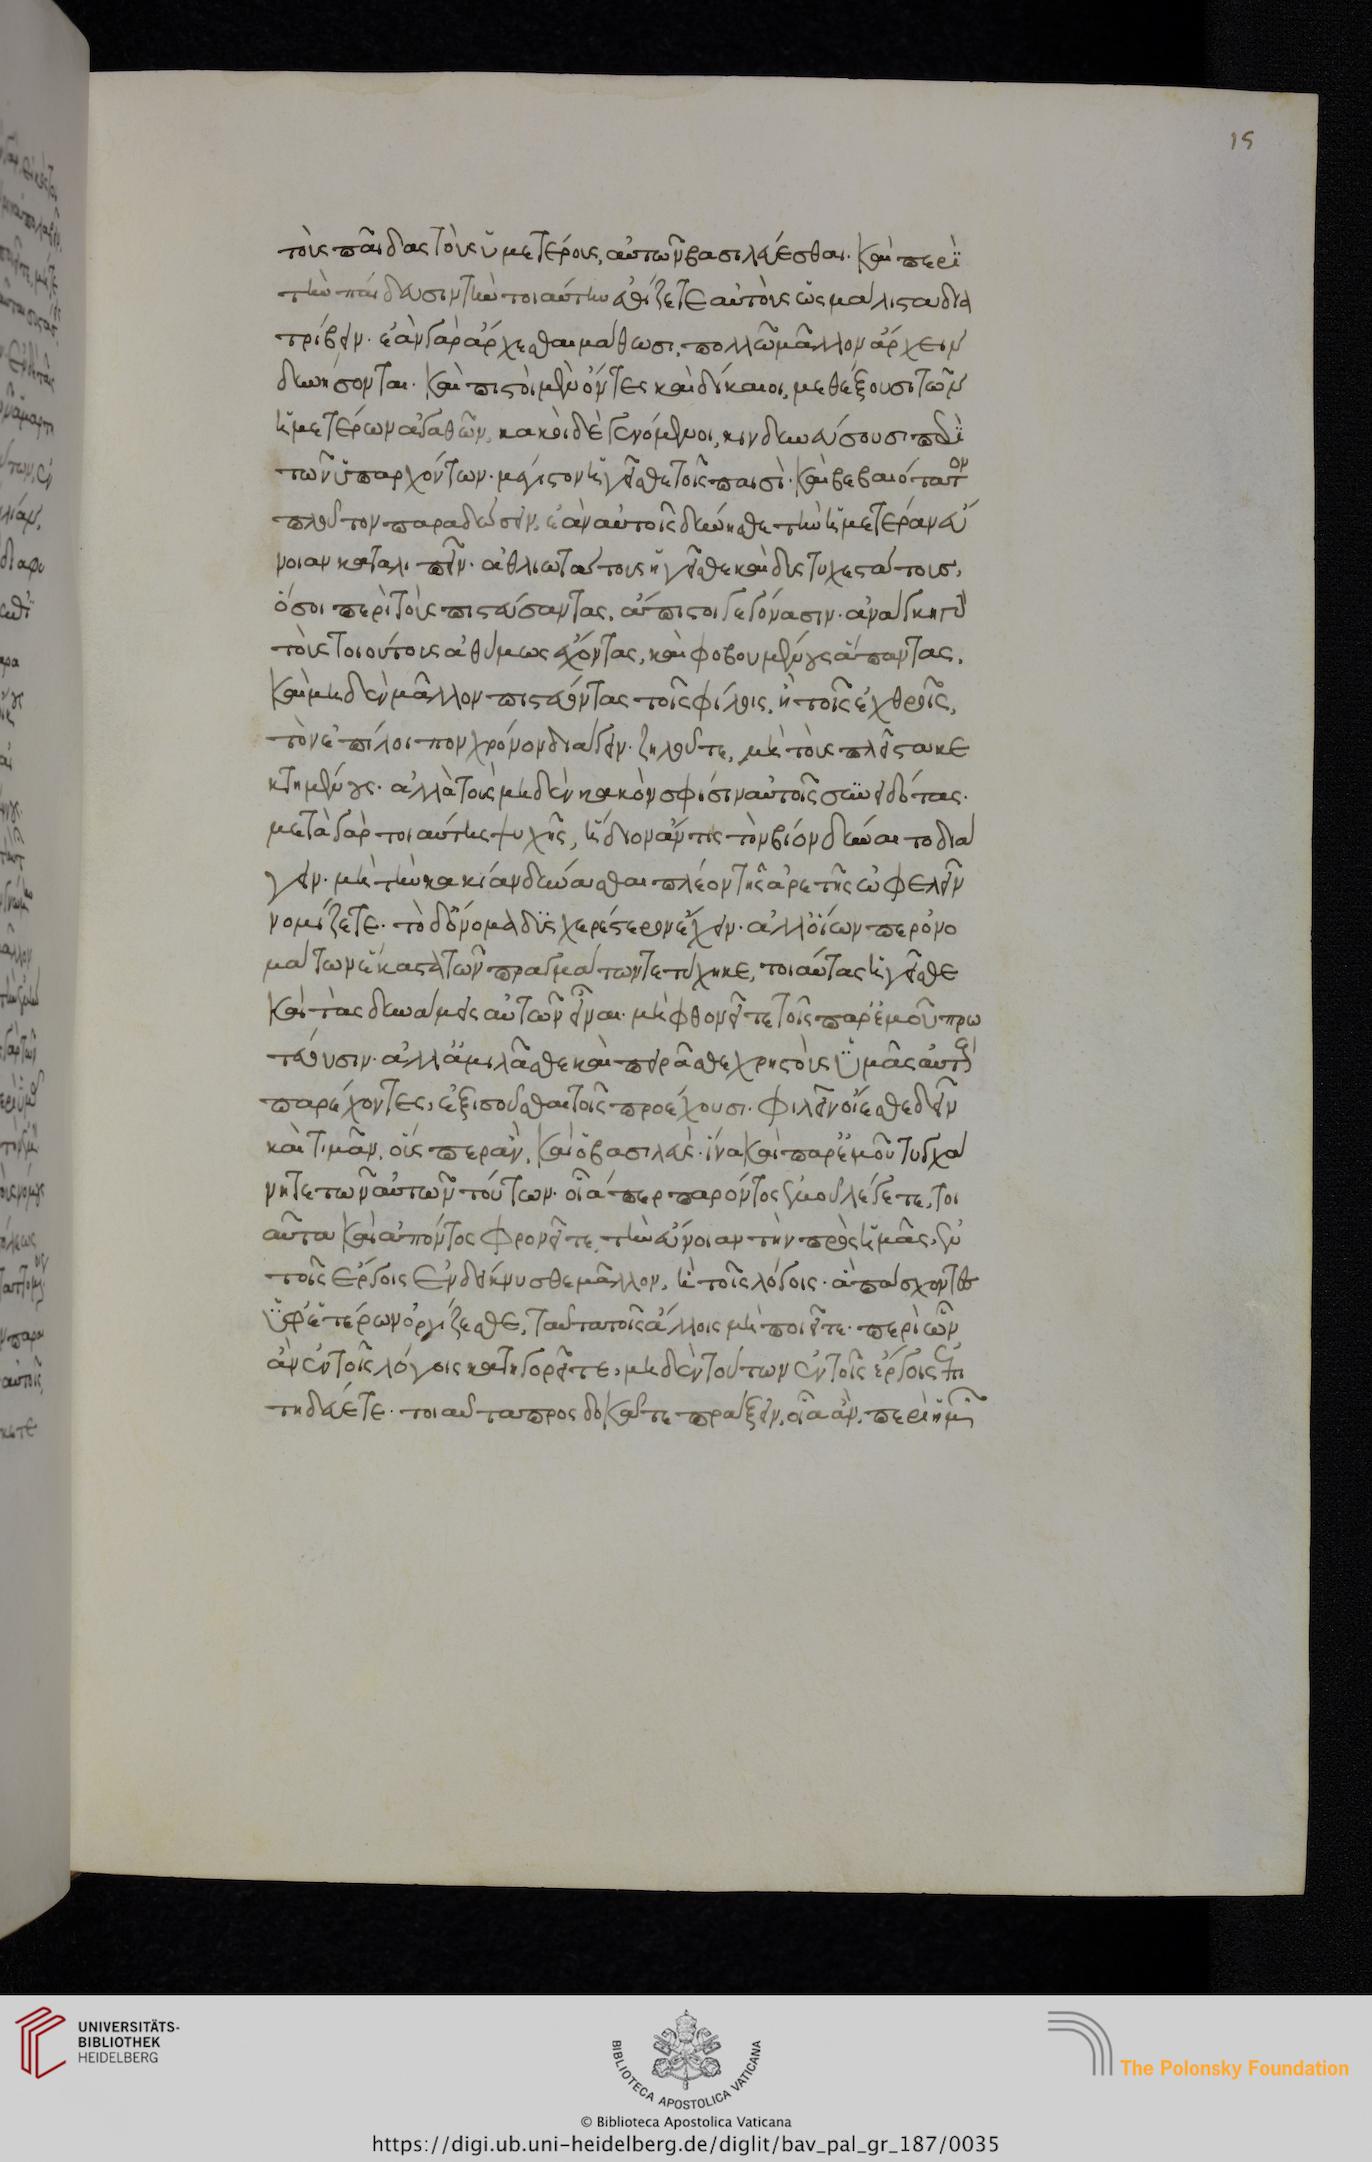 15
τοὺς παῖδας τοὺς ὑμετέρους, αὐτῶν βασιλεύεσθαι. καὶ περὶ
τὴν παίδευσιν τὴν τοιαύτην ἐθίζετε αὐτοὺς ὡς μάλιστα δια
τρίβειν. ἐὰν γὰρ ἄρχεσθαι μάθωσι, πολλῶ μᾶλλον ἄρχειν
δυνήσονται. καὶ πιστοὶ μὲν ὄντες καὶ δίκαιοι, μεθέξουσι τῶν
ἡμετέρων ἀγαθῶν, κακοὶ δὲ γενόμενοι, κινδυνεύσουσι περὶ
τῶν ὑπαρχόντων. μέγιστον ἡγεῖσθε τοῖς παισὶ. καὶ βεβαιότατον
πλοῦτον παραδώσειν, ἐὰν αὐτοῖς δύνησθε τὴν ἡμετέραν εὔ
νοιαν καταλιπεῖν. ἀθλιωτάτους ἡγεῖσθε καὶ δυστυχεστάτους,
ὅσοι περὶ τοὺς πιστεύσαντας, ἄπιστοι γεγόνασιν. ἀνάγκη γὰρ
τοὺς τοιούτους ἀθύμως ἔχοντας, καὶ φοβουμένους ἅπαντας,
καὶ μηδὲν μᾶλλον πιστεύοντας τοῖς φίλοις, ἢ τοῖς ἐχθροῖς,
τὸν ἐπίλοιπον χρόνον διάγειν. ζηλοῦτε, μὴ τοὺς πλεῖστα κε
κτημένους. ἀλλὰ τοὺς μηδὲν κακὸν σφίσιν αὐτοῖς συνειδότας.
μετὰ γὰρ τοιαύτης ψυχῆς, ἥδιον ἄν τις τὸν βίον δύναιτο δια
γειν. μὴ τὴν κακίαν δύνασθαι πλέον τῆς ἀρετῆς ὠφελεῖν
νομίζετε. τὸ δ' ὄνομα δυσχερέστερον ἔχειν. ἀλλ' οἵων περ ὀνο
μάτων ἕκαστα τῶν πραγμάτων τετύχηκε, τοιαύτας ἡγεῖσθε
καὶ τὰς δυνάμεις αὐτῶν εἶναι. μὴ φθονεῖτε τοῖς παρ' ἐμοῦ πρω
τεύουσιν. ἀλλ' ἁμιλλᾶσθε καὶ πειρᾶσθε χρηστοὺς ὑμᾶς αὐτοὺς
παρέχοντες, ἐξισοῦσθαι τοῖς προέχουσι. φιλεῖν οἴεσθε δεῖν
καὶ τιμᾶν, οὕς περ ἂν, καὶ ὁ βασιλεὺς. ἵνα καὶ παρ' ἐμοῦ τυγχά
νητε τῶν αὐτῶν τούτων. οἷά περ παρόντος ἐμοῦ λέγετε, τοι
αῦτα καὶ ἀπόντος φρονεῖτε. τὴν εὔνοιαν τὴν πρὸς ἡμᾶς, ἐν
τοῖς ἔργοις ἐνδείκνυσθε μᾶλλον, ἢ τοῖς λόγοις. ἃ πάσχοντες
ὑφ' ἑτέρων ὀργίζεσθε, ταῦτα τοῖς ἄλλοις μὴ ποιεῖτε. περὶ ὧν
ἂν ἐν τοῖς λόγοις κατηγορεῖτε, μηδὲν τούτων ἐν τοῖς ἔργοις ἐπι
τηδεύετε. τοιαῦτα προσδοκᾶτε πράξειν, οἷα ἂν, περὶ ἡμῶν
UNIVERSITÄTS-
BIBLIOTHEK
HEIDELBERG
BIBLIOTECA APOSTOLICA VATICANA
The Polonsky Foundation
© Biblioteca Apostolica Vaticana
https://digi.ub.uni-heidelberg.de/diglit/bav_pal_gr_187/0035